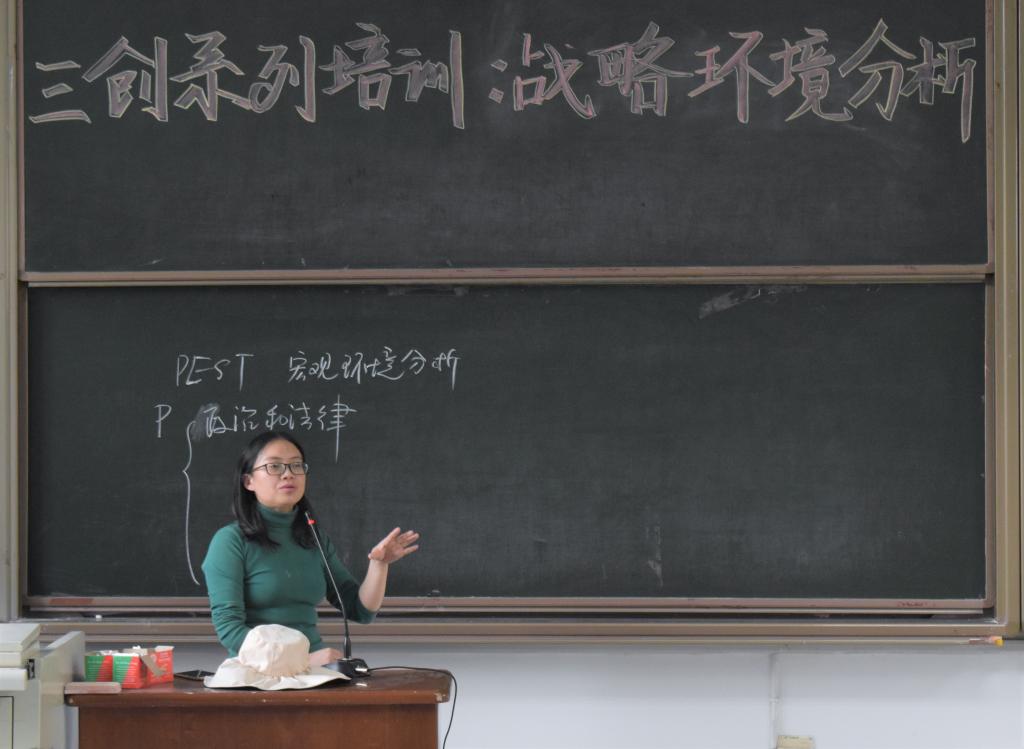 三创系列培训:战略环境分析
PEST 宏观环境分析
P 政治和法律